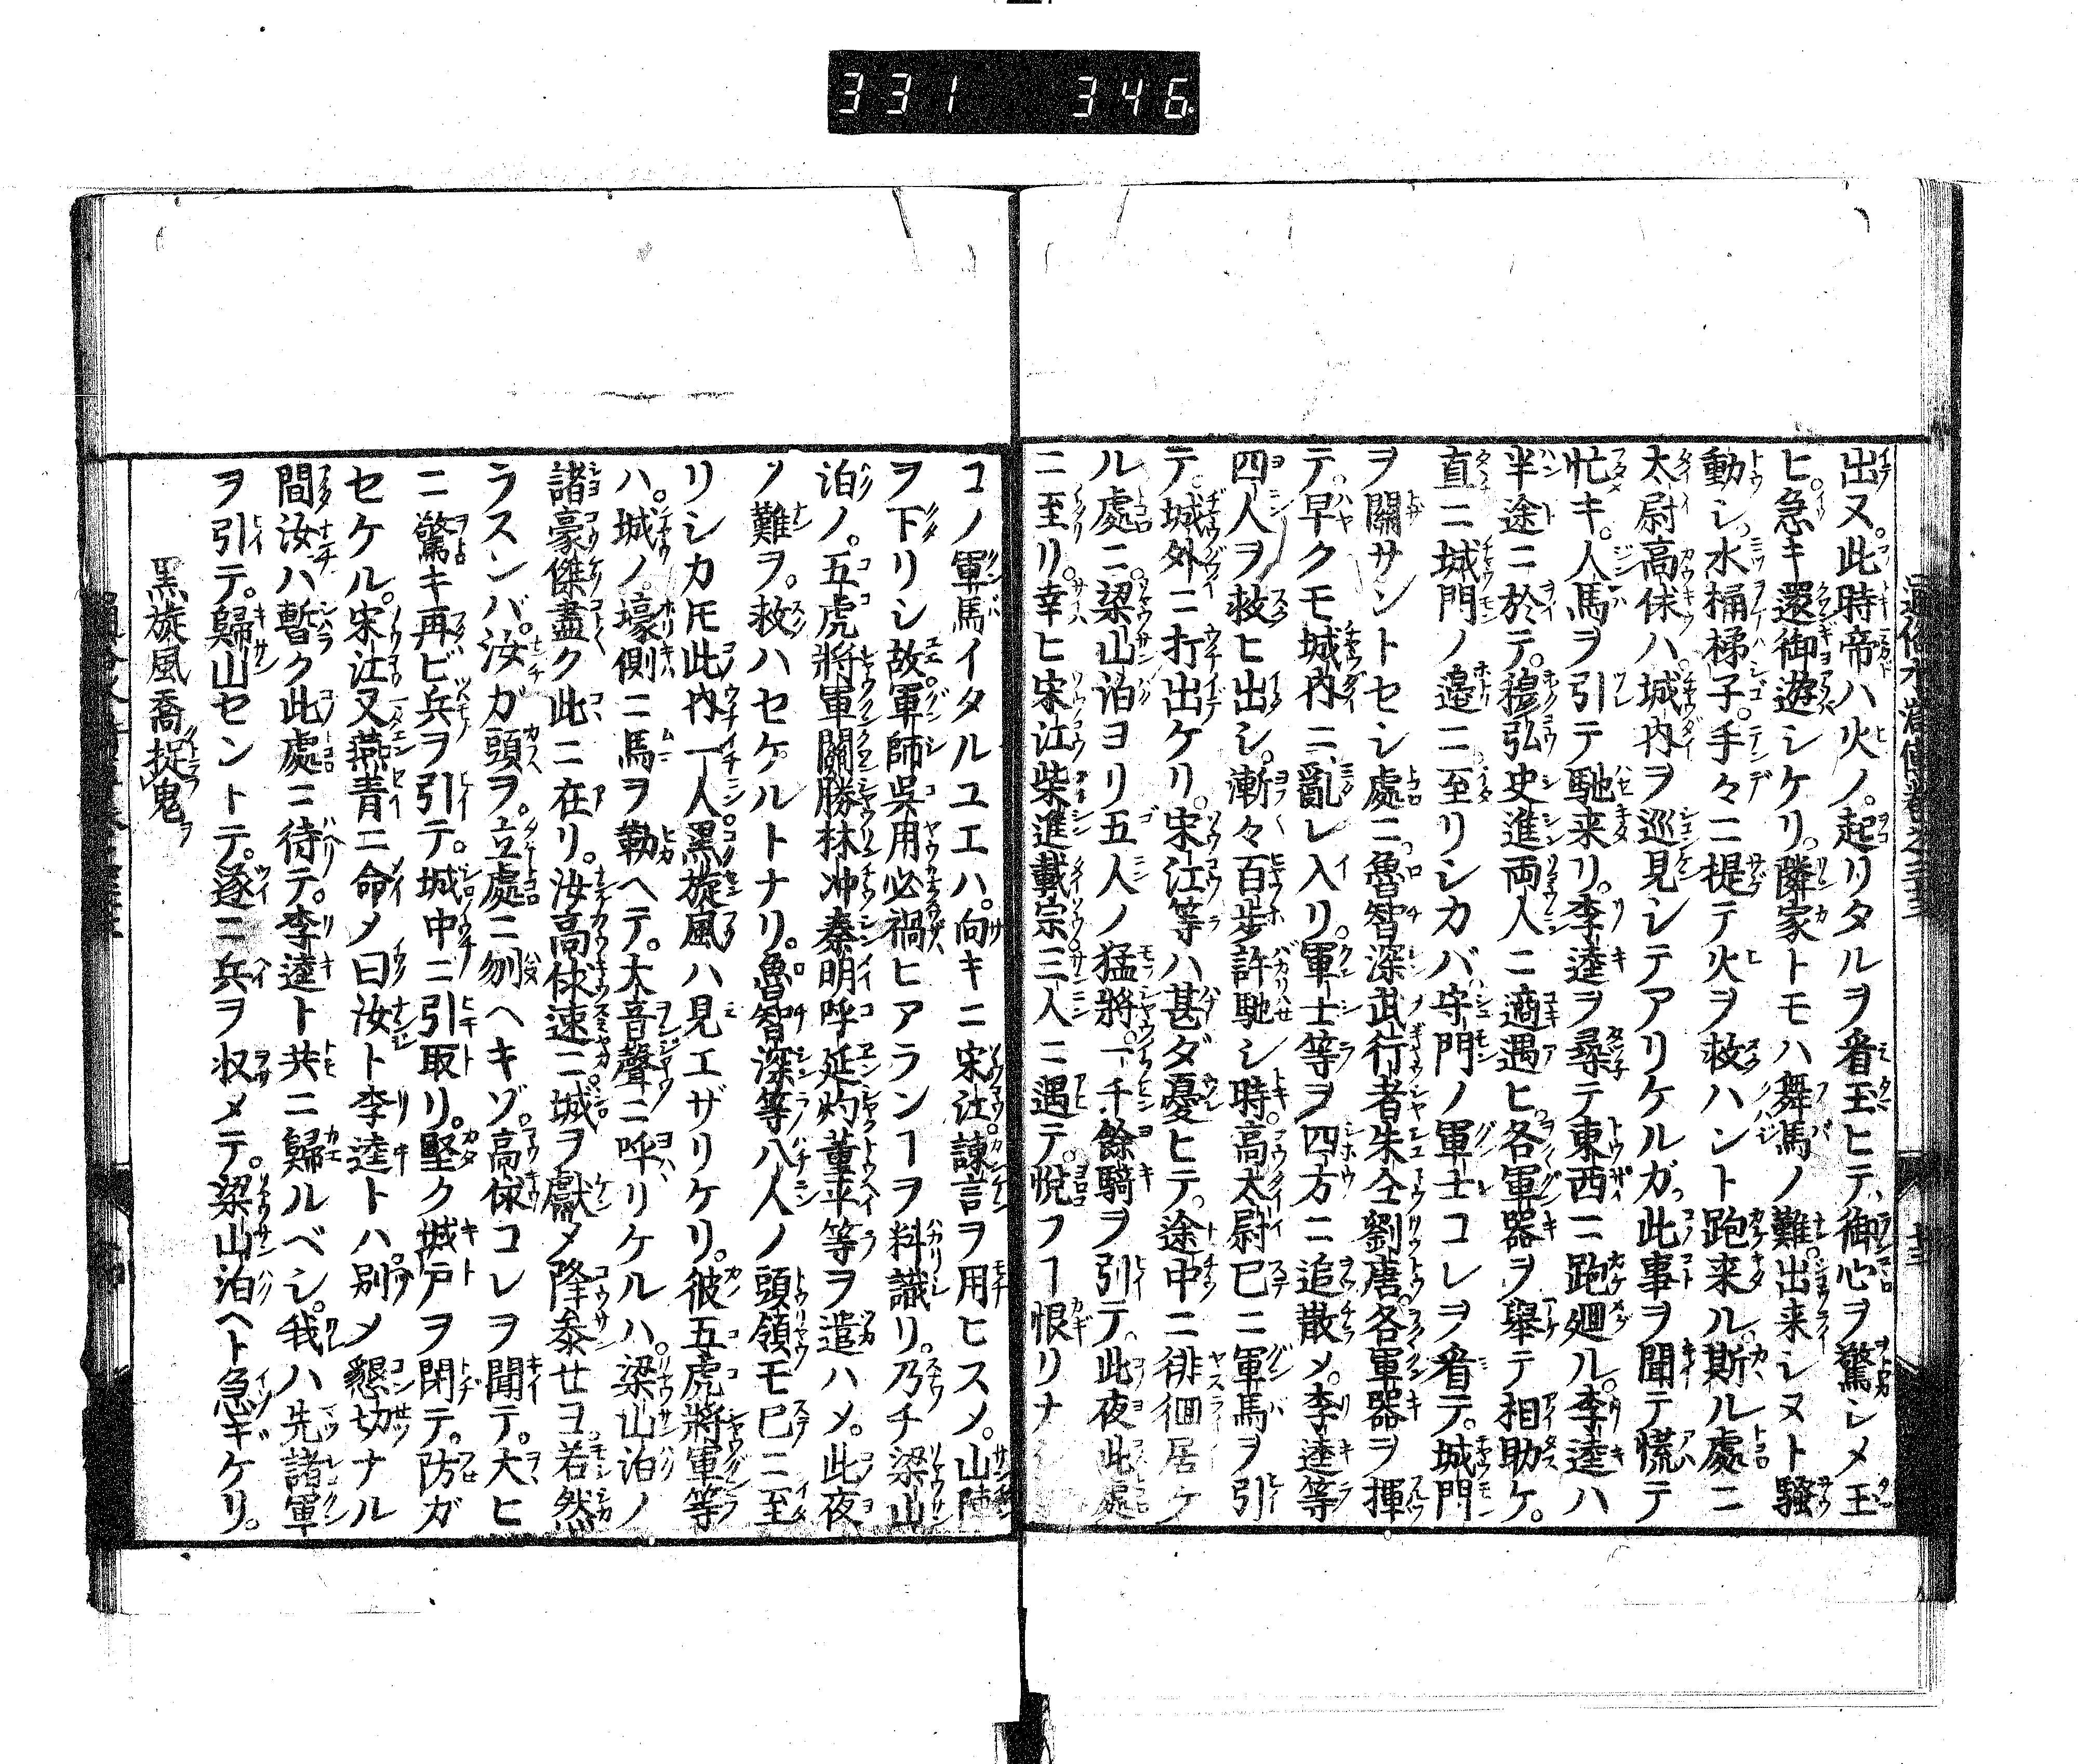 331 346
出ヌ。此時帝ハ火ノ。起リタルヲ看玉ヒテ、御心ヲ驚シメ玉
ヒ。急キ還御遊シケリ。隣家トモハ舞馬ノ難出来シヌト騒
動シ。水桶梯子。手々ニ提テ火ヲ救ハント跑来ル。斯ル處ニ
太尉高俅ハ。城内ヲ巡見シテアリケルガ。此事ヲ聞テ慌テ
忙キ。人馬ヲ引テ馳来リ。李逵ヲ尋テ東西ニ跑廻ル。李逵ハ
半途ニ於テ。穆弘史進両人ニ適遇ヒ。各軍器ヲ舉テ相助ケ。
直ニ城門ノ邉ニ至リシカバ守門ノ軍士コレヲ看テ。城門
ヲ關サントセシ處ニ。魯智深武行者朱仝劉唐。各軍器ヲ揮
テ。早クモ城内ニ亂レ入リ。軍士等ヲ四方ニ追散メ。李逵等
四人ヲ救ヒ出シ。漸々百步許馳シ時。高太尉巳ニ軍馬ヲ引
テ。城外ニ打出ケリ。宋江等ハ甚ダ憂ヒテ。途中ニ徘徊居ケ
ル處ニ。梁山泊ヨリ五人ノ猛將。一千餘騎ヲ引テ。此夜此處
ニ至リ。幸ヒ宋江柴進戴宗三人ニ遇テ。悅フヿ恨リナ
コノ軍馬イタルユエハ。向キニ宋江。諌言ヲ用ヒスメ。山陣
ヲ下リシ故。軍師呉用必禍ヒアランヿヲ料識リ。乃チ梁山
泊ノ。五虎將軍關勝林冲秦明呼延灼董平等ヲ遣ハメ。此夜
ノ難ヲ。救ハセケルトナリ。魯智深等八人ノ頭領モ巳ニ至
リシカ𪜈此内一人黒旋風ハ見エザリケリ。彼五虎將軍等
ハ。城ノ壕側ニ馬ヲ勒ヘテ。大音聲ニ呼リケルハ。梁山泊ノ
諸豪傑盡ク此ニ在リ。汝高俅速ニ城ヲ獻メ降叅せヨ。若然
ラスンバ。汝ガ頭ヲ。立處ニ刎ヘキゾ。高俅コレヲ聞テ。大ヒ
ニ驚キ再ビ兵ヲ引テ。城中ニ引取リ。堅ク城戸ヲ閉テ。防ガ
セケル。宋江又燕青ニ命メ曰汝ト李逵トハ。別メ懇切ナル
間汝ハ暫ク此處ニ待テ。李逵ト共ニ歸ルベシ。我ハ先諸軍
ヲ引テ。歸山セントテ。遂ニ兵ヲ収メテ。梁山泊ヘト急ギケリ。
黒旋風喬捉鬼ヲ